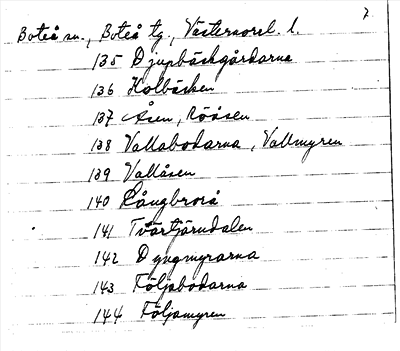 7
Boteå sn., Boteå tg., Västernorrl. l.
135 Djupbäcksgårdarna
136 Holbäcken
137 Åsen, Rööåsen
138 Vallabodarna, Vallmyren
139 Vallåsen
140 Långbrorå
141 Tvärtjärndalen
142 Dyngmyrarna
143 Följabodarna
144 Följamyren